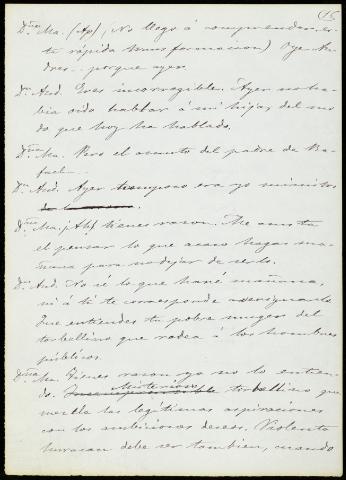 15
Dña Ma. (Ap) (No llego á comprender es-
ta rápida transformacion) Oye An-
dres... porque ayer
Dn And. Eres incorregible. Ayer no ha-
bia oido hablar á mi hija, del mo-
do que hoy ha hablado.
Dña Ma. Pero el asunto del padre de Ra-
fael...
Dn And. Ayer tampoco era yo ministro
Dña Ma. ¡Ah! tienes razon. Me asusta
el pensar lo que acaso hagas ma-
ñana para no dejar de serlo.
Dn And. No sé lo que haré mañana,
ni á tí te corresponde averiguarlo
Que entiendes tu pobre muger del
torbellino que rodea á los hombres
públicos.
Dña Ma. Tienes razon yo no lo entien-
do. Misterioso torbellino que
mezcla las legítimas aspiraciones
con los ambiciosos deseos. Violento
huracan debe ser tambien, cuando